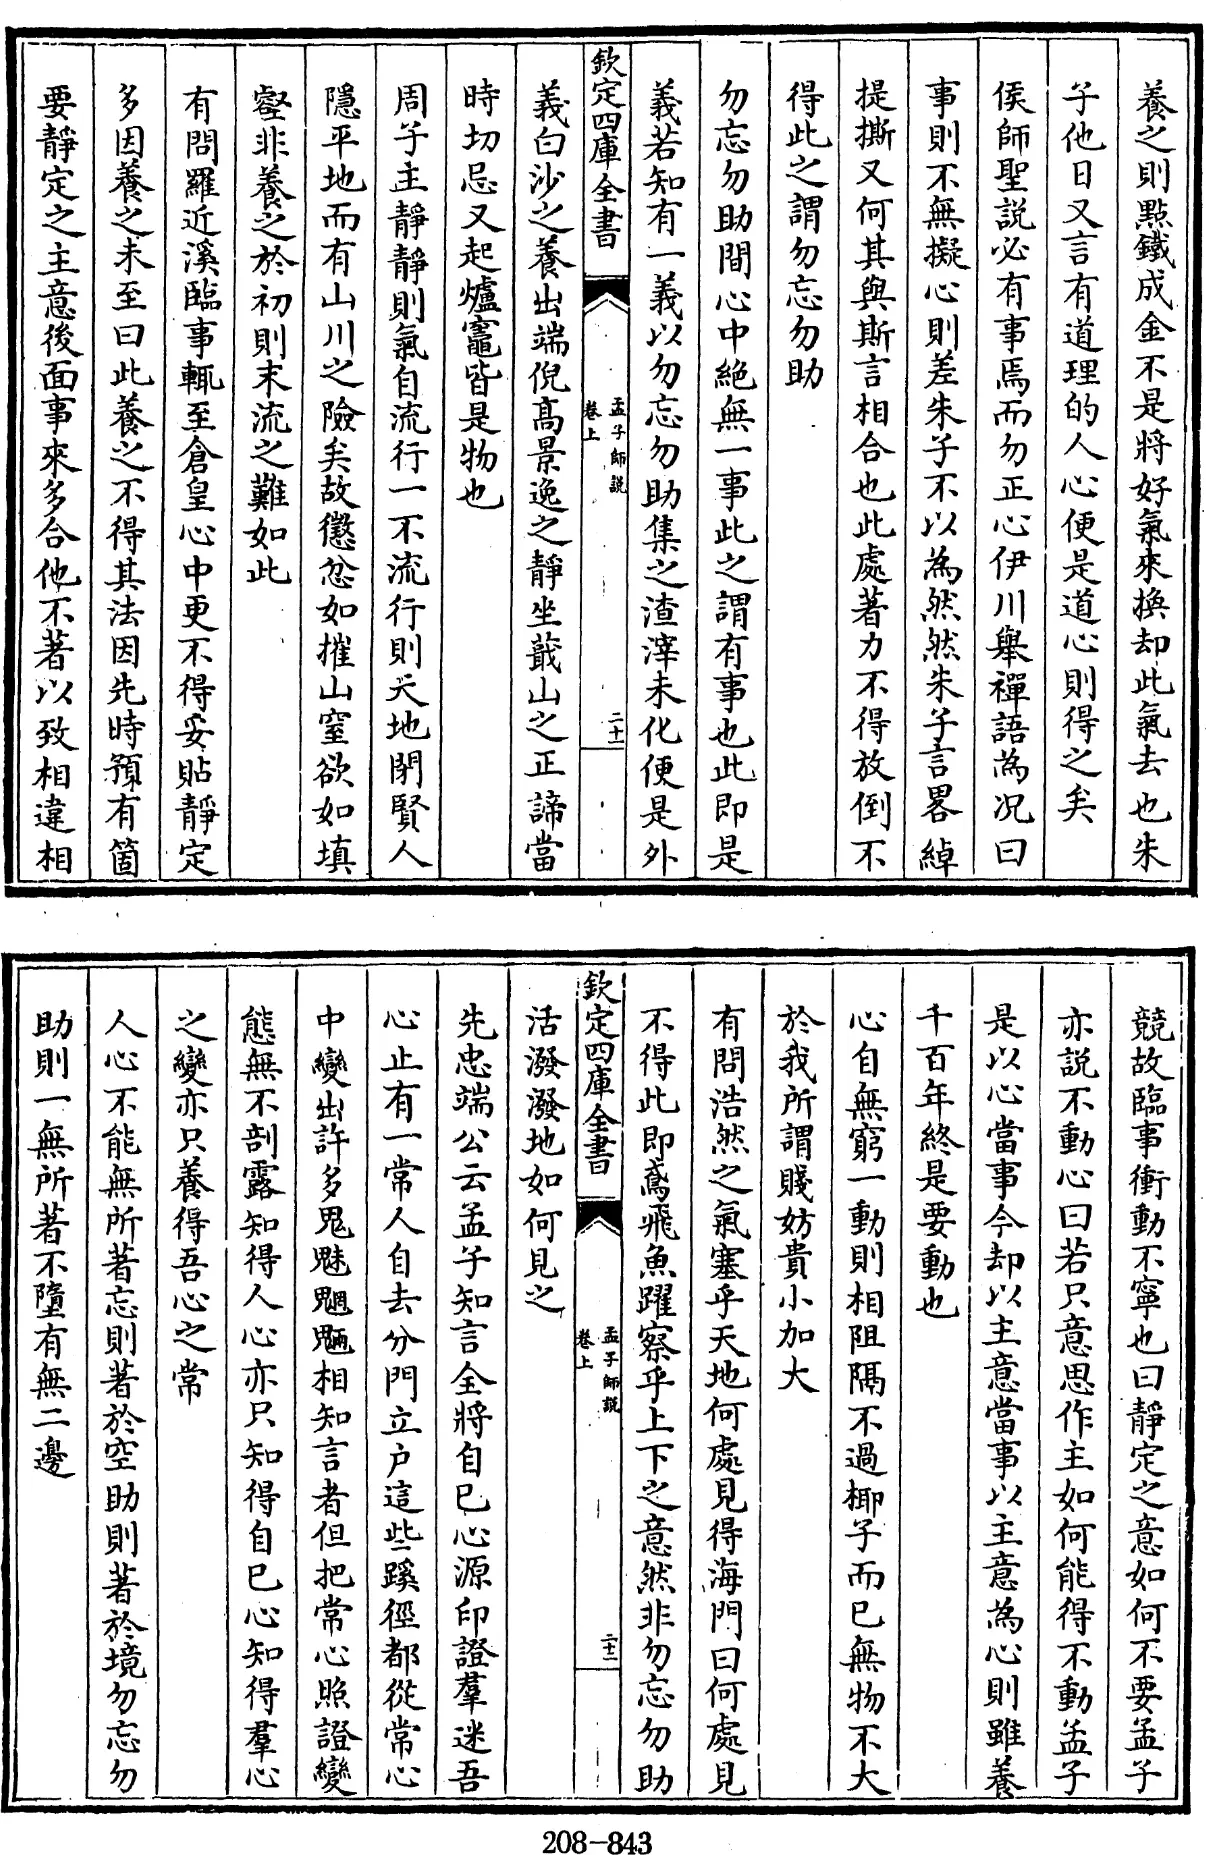 養之則點鐵成金不是將好氣來換却此氣去也朱
子他日又言有道理的人心便是道心則得之矣
侯師聖説必有事焉而勿正心伊川舉禪語為况曰
事則不無擬心則差朱子不以為然然朱子言畧綽
提撕又何其與斯言相合也此處著力不得放倒不
得此之謂勿忘勿助
勿忘勿助間心中絶無一事此之謂有事也此即是
義若知有一義以勿忘勿助集之渣滓未化便是外
欽定四庫全書
孟子師説
卷上
二十
義白沙之養出端倪髙景逸之靜坐蕺山之正諦當
時切忌又起爐竈皆是物也
周子主靜靜則氣自流行一不流行則天地閉賢人
隱平地而有山川之險矣故懲忿如摧山窒欲如填
壑非養之於初則末流之難如此
有問羅近溪臨事輒至倉皇心中更不得妥貼靜定
多因養之未至曰此養之不得其法因先時預有箇
要靜定之主意後面事來多合他不著以致相違相
競故臨事衝動不寧也曰靜定之意如何不要孟子
亦説不動心曰若只意思作主如何能得不動孟子
是以心當事今却以主意當事以主意為心則雖養
千百年終是要動也
心自無窮一動則相阻隔不過椰子而已無物不大
於我所謂賤妨貴小加大
有問浩然之氣塞乎天地何處見得海門曰何處見
不得此即鳶飛魚躍察乎上下之意然非勿忘勿助
欽定四庫全書
孟子師説
卷上
二十一
活潑潑地如何見之
先忠端公云孟子知言全將自已心源印證羣迷吾
心止有一常人自去分門立户這些蹊徑都從常心
中變出許多鬼魅魍魎相知言者但把常心照證變
態無不剖露知得人心亦只知得自已心知得羣心
之變亦只養得吾心之常
人心不能無所著忘則著於空助則著於境勿忘勿
助則一無所著不墮有無二邊
208-843